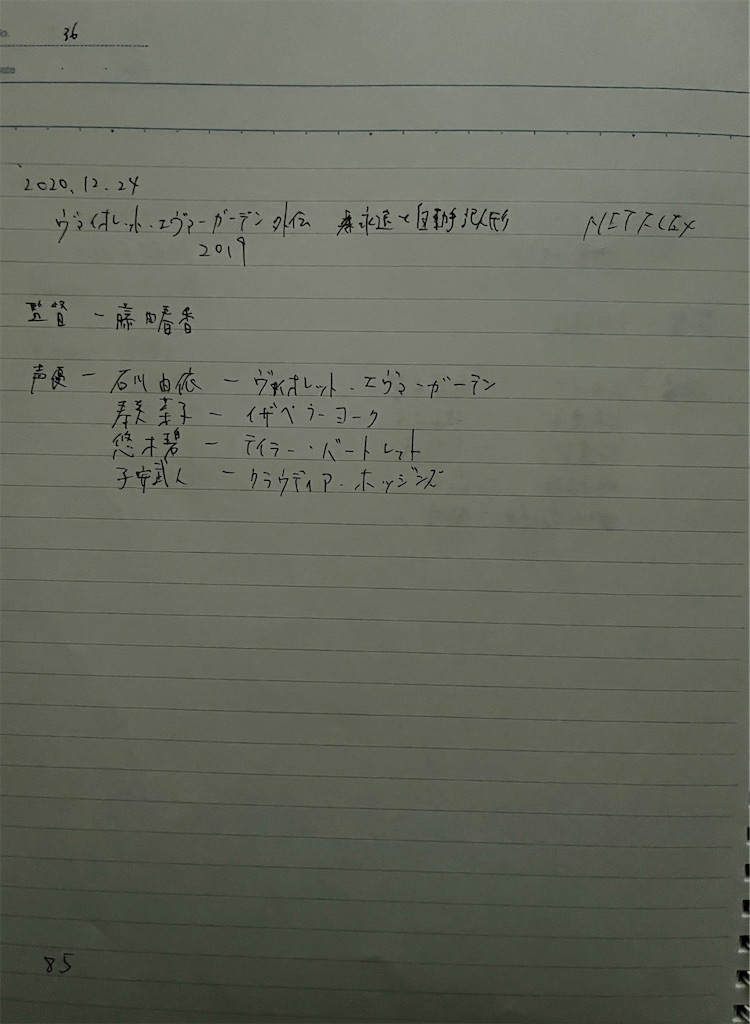 No. 36
Date
2020.12.24
ヴァイオレット・エヴァーガーデン 外伝 永遠と自動手記人形 NETFLIX
2019
監督 － 藤田春香
声優 － 石川由依 － ヴァイオレット・エヴァーガーデン
寿美菜子 － イザベラ・ヨーク
悠木碧 － テイラー・バートレット
子安武人 － クラウディア・ホッジンズ
85